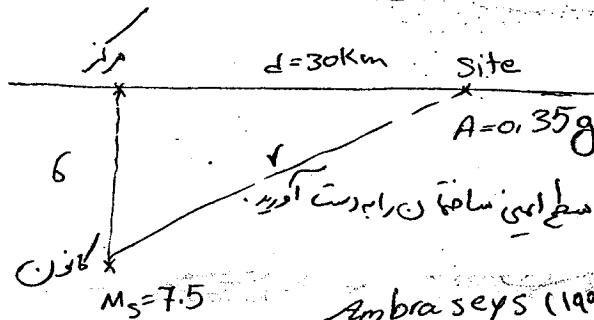 مرکز
d=30Km
Site
A=0.35g
6
r
سطح ایمنی ساختمان را به دست آورید.
کانون
Ms=7.5
Ambraseys (19